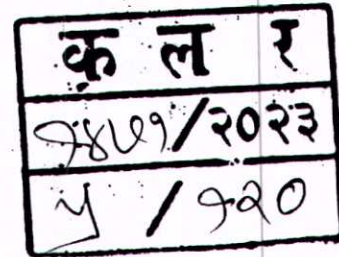 क ल र
१४७१/२०२३
५ / १२०